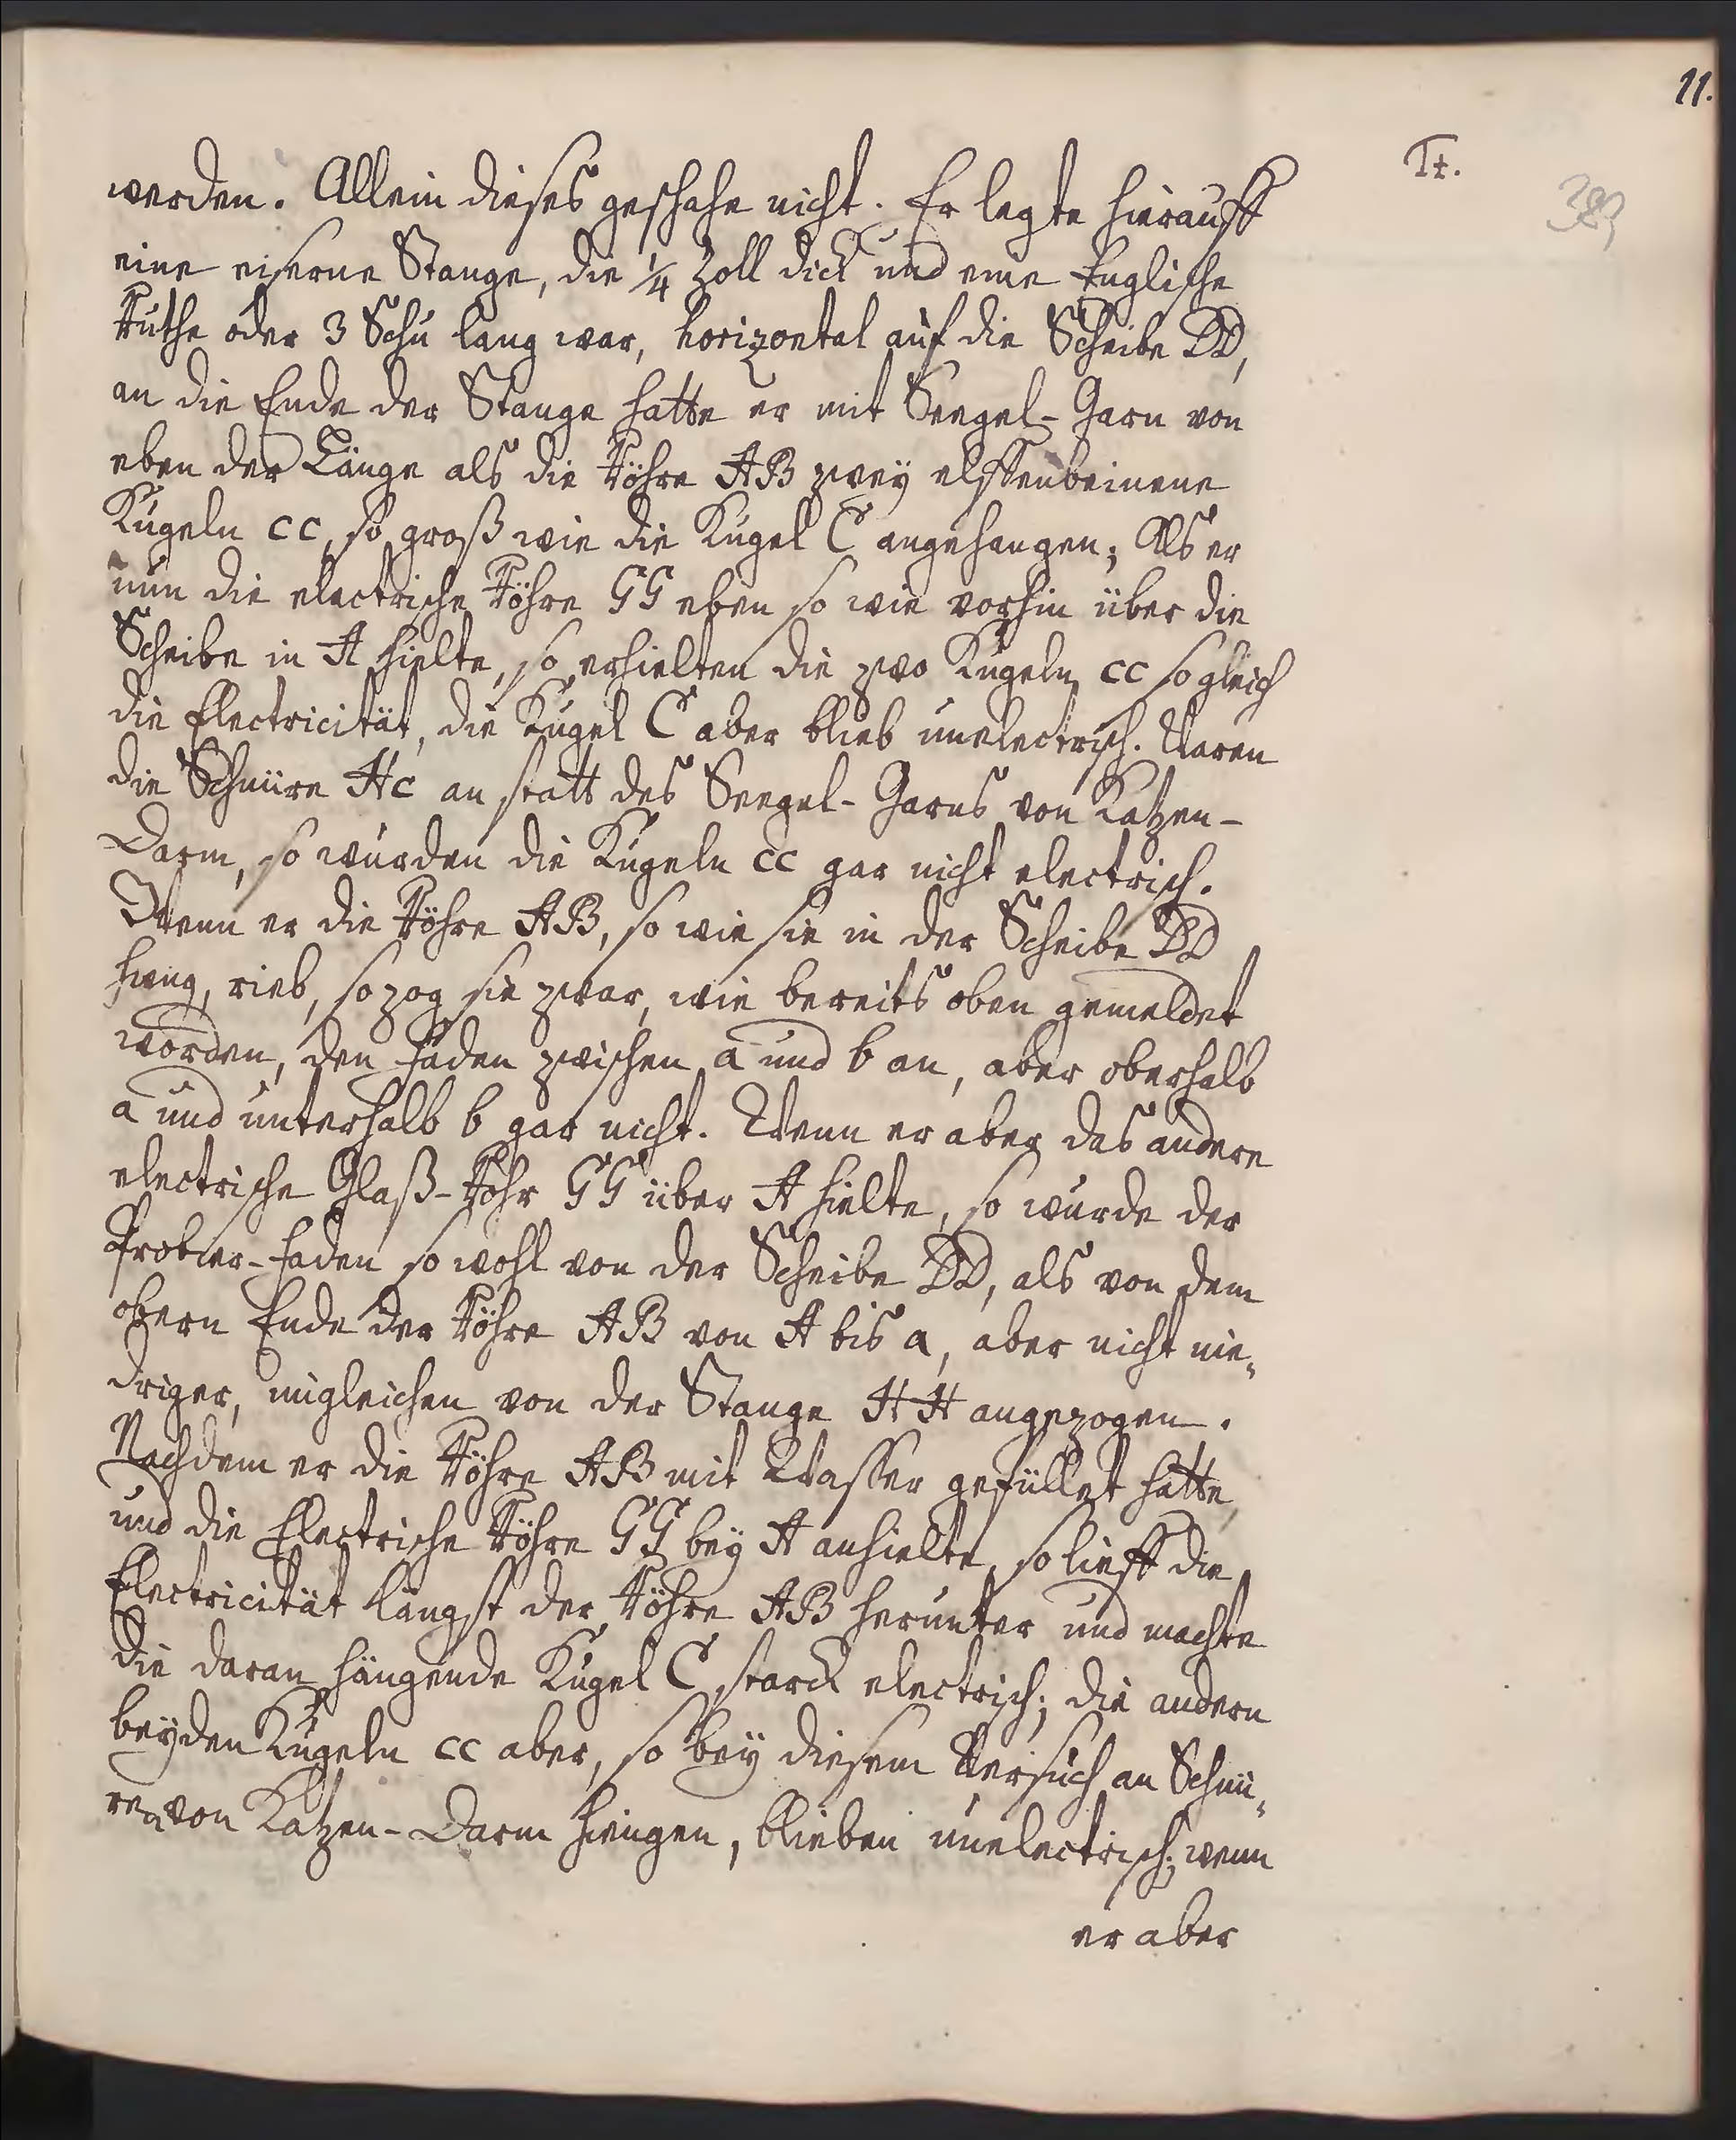 11.
It.
383
werden. Allein dieses geschahe nicht. Er legte hierauff
eine eiserne Stange, die 1/4 Zoll dick und eine Englische
Ruthe oder 3 Schu lang war, horizontal auf die Scheibe DD,
an die Ende der Stange hatte er mit Seegel-Garn von
eben der Länge als die Röhre AB zwey elffenbeinene
Kugeln cc, so groß wie die Kugel C angehangen; Als er
nun die electrische Röhre GG eben so wie vorhin über die
Scheibe in A hielte, so erhielten die zwo Kugeln cc so gleich
die Electricität, die Kugel C aber blieb unelectrisch. Waren
die Schnüre Hc an statt des Seegel-Garns von Katzen-
Darm, so wurden die Kugeln cc gar nicht electrisch.
Wenn er die Röhre AB, so wie sie in der Scheibe DD
hieng, rieb, so zog sie zwar, wie bereits oben gemeldet
worden, den Faden zwischen a und b an, aber oberhalb
a und unterhalb b gar nicht. Wenn er aber das andere
electrische Glaß-Rohr GG über A hielte, so wurde der
Probier-Faden so wohl von der Scheibe DD, als von dem
obern Ende der Röhre AB von A bis a, aber nicht nie-
driger, imgleichen von der Stange HH angezogen.
Nachdem er die Röhre AB mit Wasser gefüllet hatte,
und die Electrische Röhre GG bey A anhielte, so lieff die
Electricität längst der Röhre AB herunter und machte
die daran hängende Kugel C starck electrisch; die andern
beyden Kugeln cc aber, so bey diesem Versuch an Schnü-
ren von Katzen-Darm hiengen, blieben unelectrisch; wenn
er aber